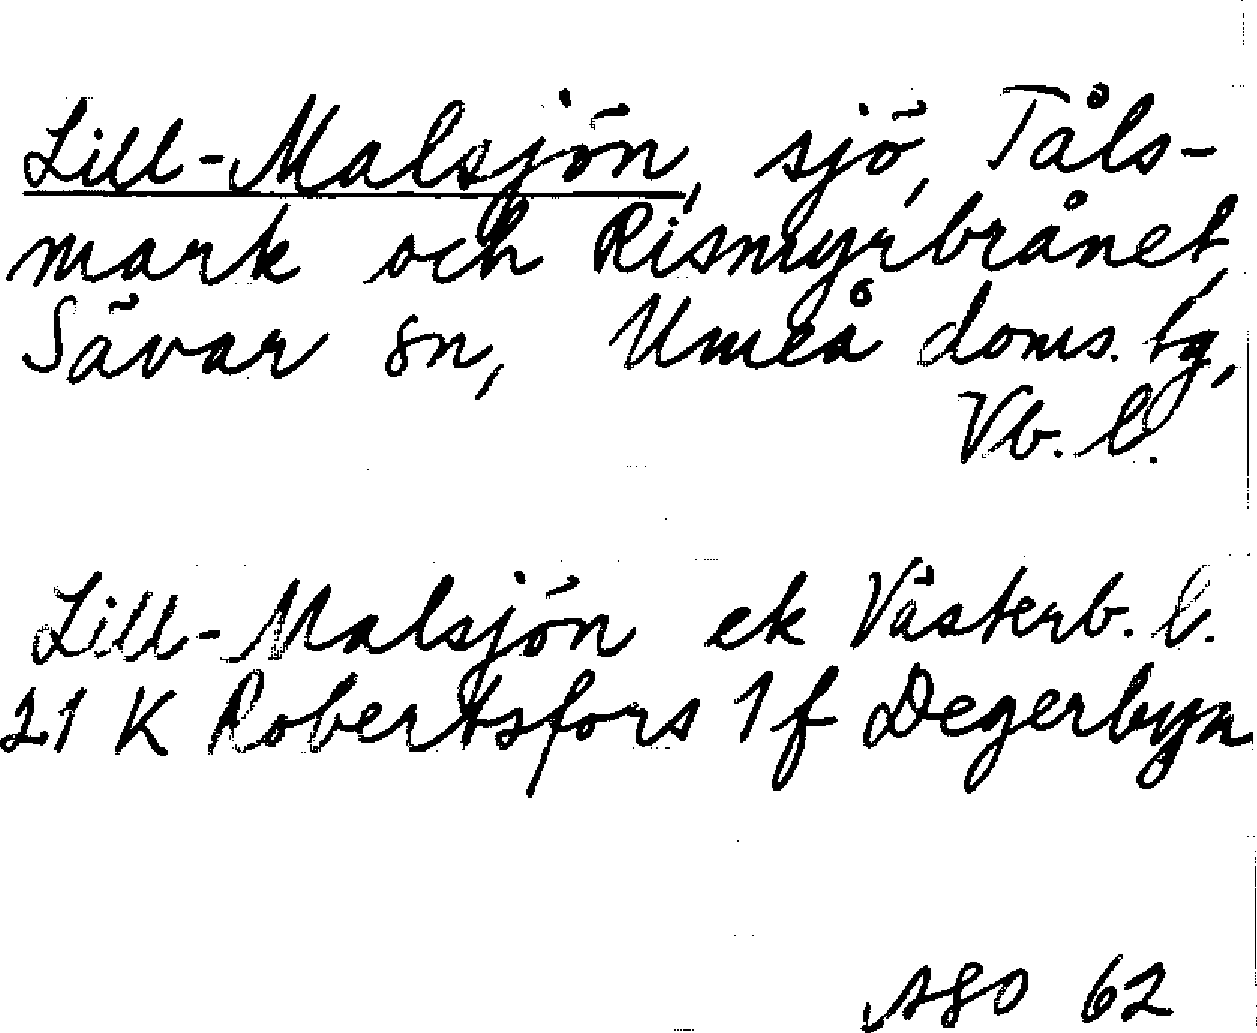 Lill-Malsjön, sjö, Tåls-
mark och Rismyrbrånet,
Sävar sn, Umeå doms. tg,
Vb. l.
Lill-Malsjön ek Västerb. l.
21 K Robertsfors 1 f Degerbyn
ASO 62